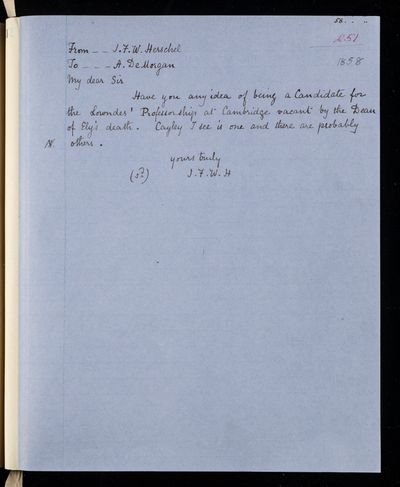 58. . ..
251
From _ _ J.F.W. Herschel
To _ _ _ A. DeMorgan
1858
My dear Sir
Have you any idea of being a Candidate for
the Lowndes' Professorship at Cambridge vacant by the Dean
of Ely's death. Cayley I see is one and there are probably
N. others.
yours truly
(sd) J.F.W.H